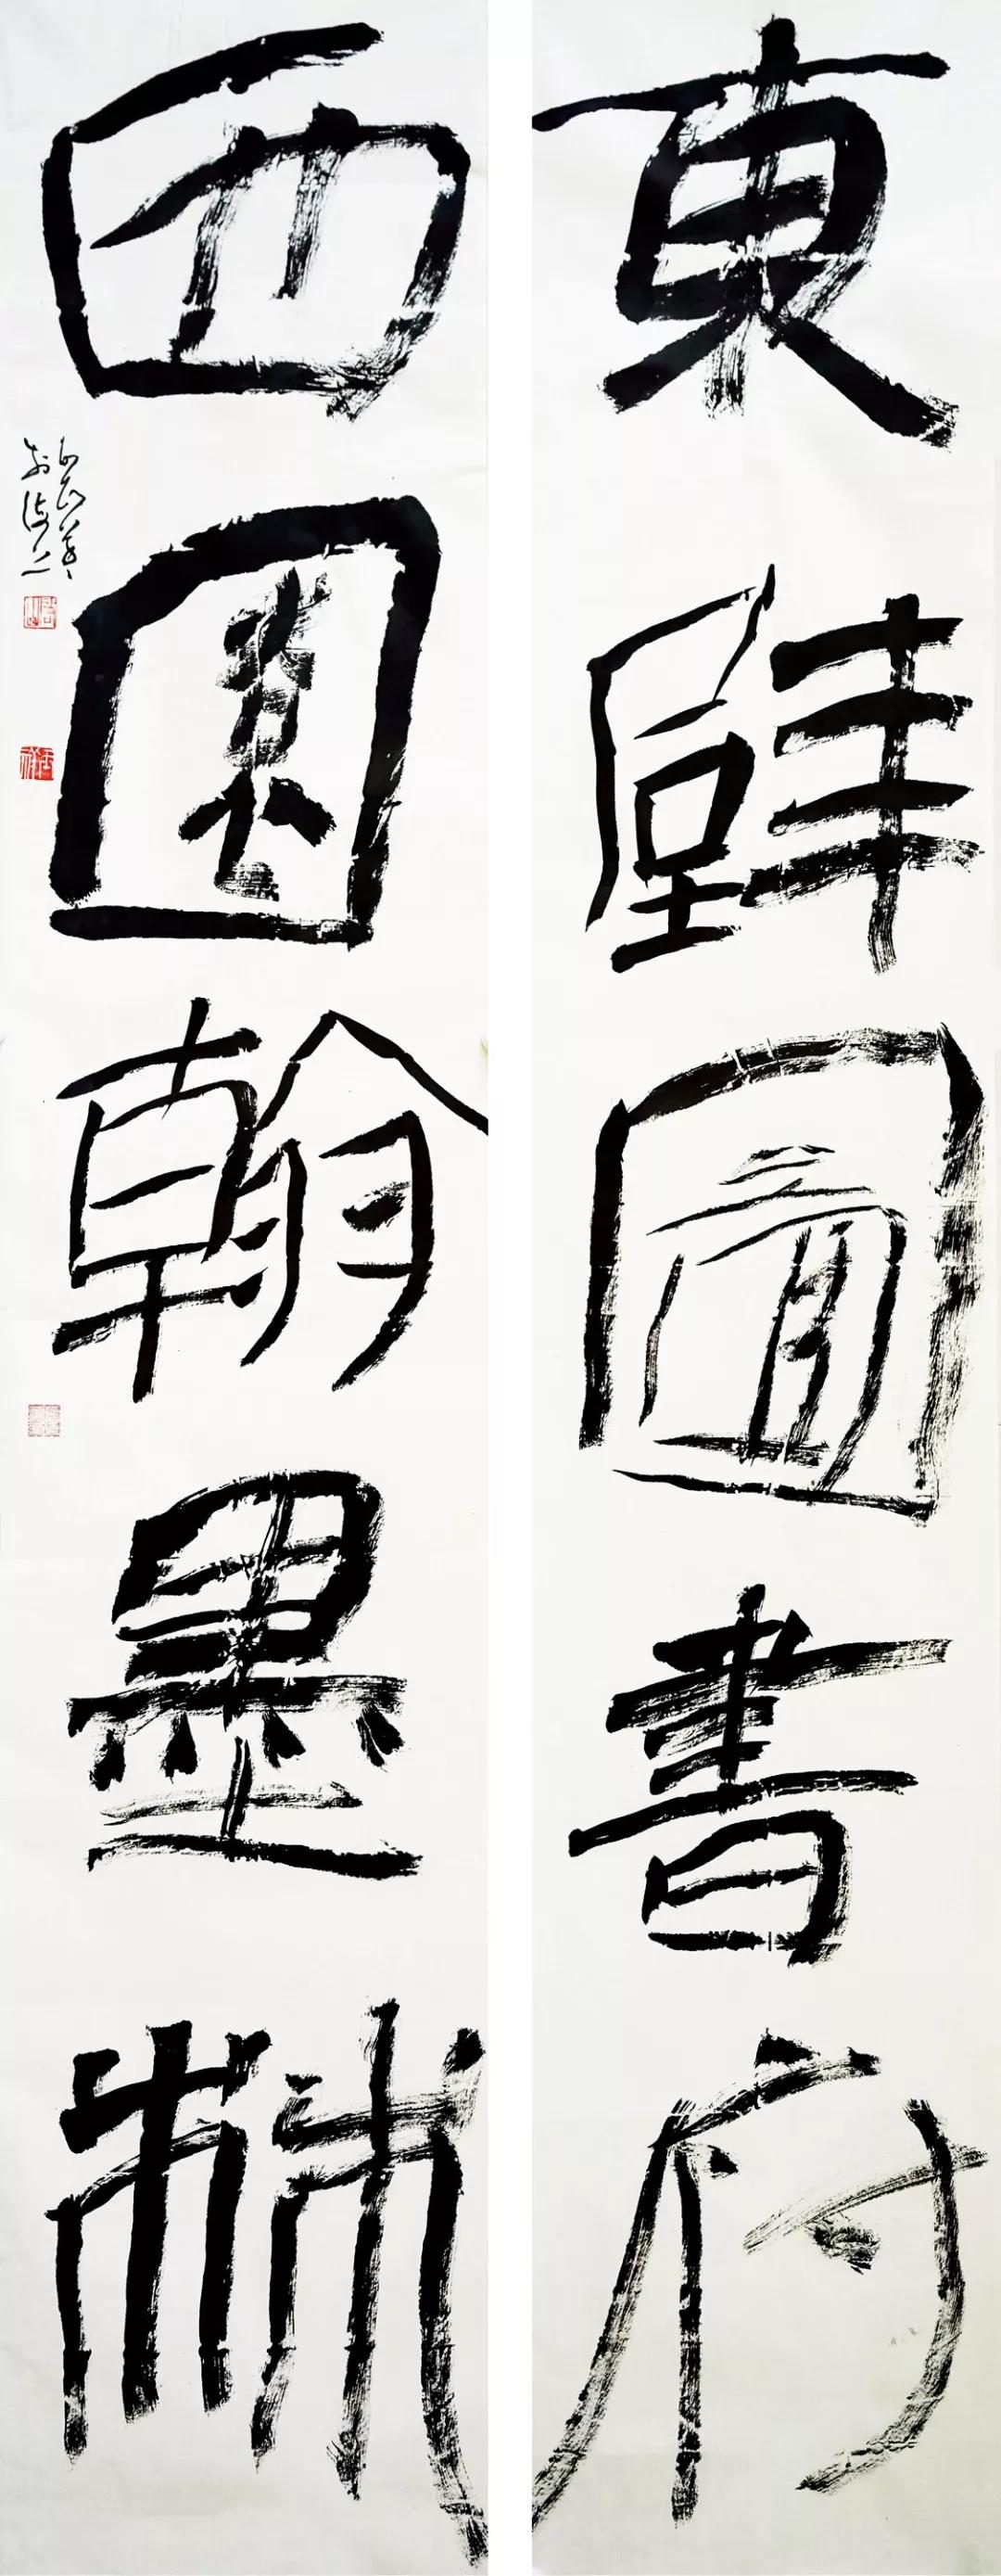 東壁圖書府
西園翰墨林